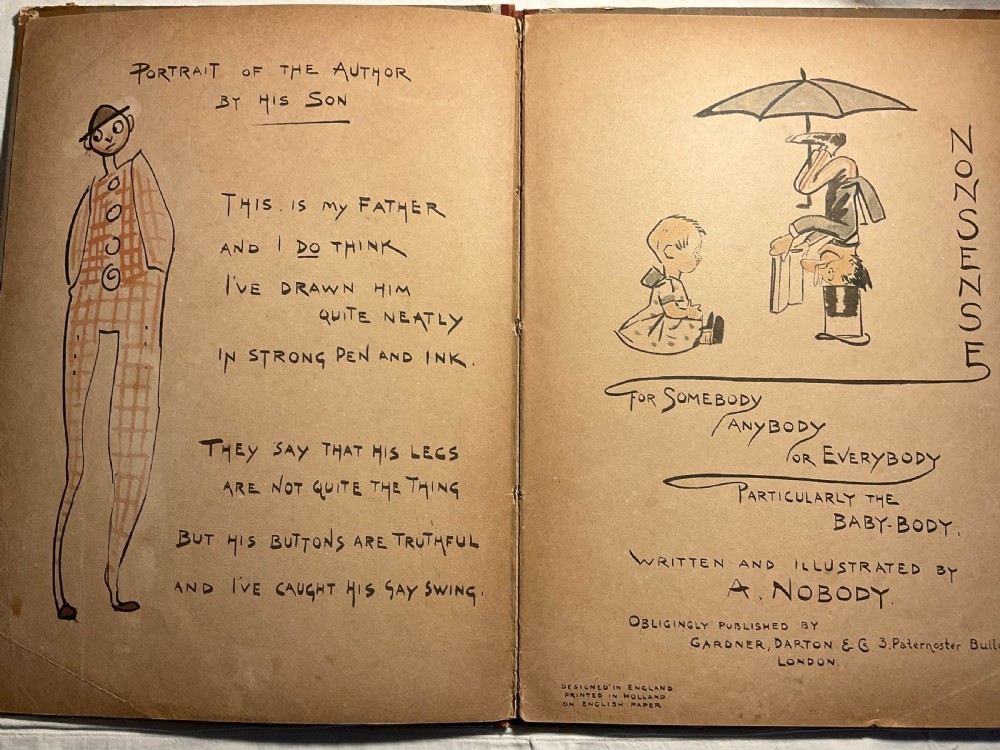 PORTRAIT OF THE AUTHOR
BY HIS SON
THIS IS MY FATHER
AND I DO THINK
I'VE DRAWN HIM
QUITE NEATLY
IN STRONG PEN AND INK.
THEY SAY THAT HIS LEGS
ARE NOT QUITE THE THING
BUT HIS BUTTONS ARE TRUTHFUL
AND I'VE CAUGHT HIS GAY SWING.
NONSENSE
FOR SOMEBODY
ANYBODY
OR EVERYBODY
PARTICULARLY THE
BABY-BODY.
WRITTEN AND ILLUSTRATED BY
A. NOBODY.
OBLIGINGLY PUBLISHED BY
GARDNER, DARTON & Co 3. Paternoster
LONDON.
DESIGNED IN ENGLAND
PRINTED IN HOLLAND
ON ENGLISH PAPER